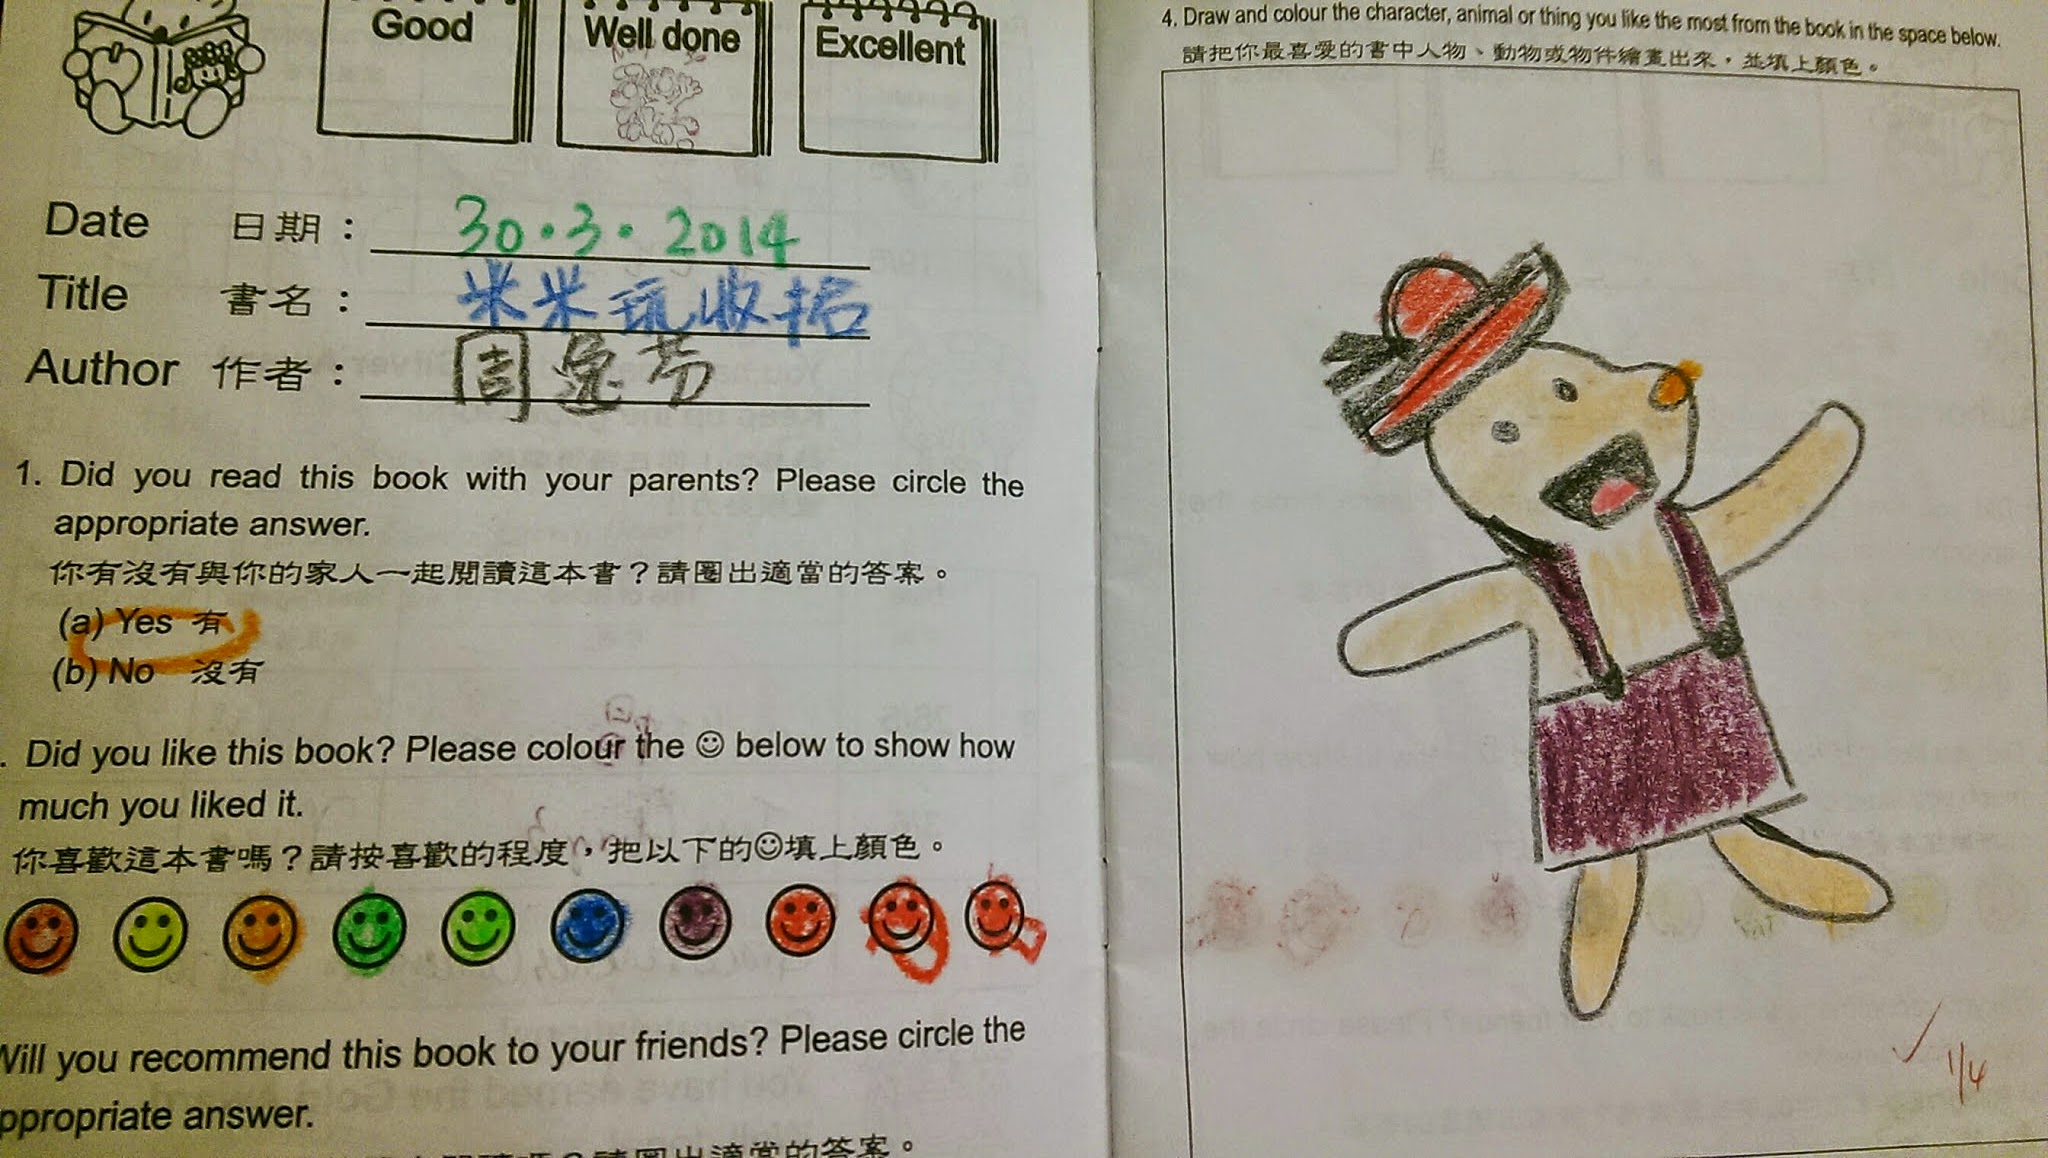 Good
Well done
Excellent
Date 日期： 30.3.2014
Title 書名： 米米玩收拾
Author 作者： 周逸芬
1. Did you read this book with your parents? Please circle the
appropriate answer.
你有沒有與你的家人一起閱讀這本書？請圈出適當的答案。
(a) Yes 有
(b) No 沒有
. Did you like this book? Please colour the ☺ below to show how
much you liked it.
你喜歡這本書嗎？請按喜歡的程度，把以下的☺填上顏色。
Will you recommend this book to your friends? Please circle the
ppropriate answer.
請圈出適當的答案。
4. Draw and colour the character, animal or thing you like the most from the book in the space below.
請把你最喜愛的書中人物、動物或物件繪畫出來，並填上顏色。
✓ 1/4